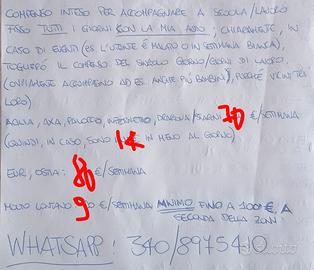 COMPENSO INTESO PER ACCOMPAGNARE A SCUOLA/LAVORO
FISSO TUTTI I GIORNI CON LA MIA AUTO; CHIARAMENTE, IN
CASO DI EVENTI (ES L'UTENTE È MALATO O IN SETTIMANA BIANCA),
TOGLIERÒ IL COMPENSO DEL SINGOLO GIORNO/GIORNI DI LAVORO,
(OVVIAMENTE ACCOMPAGNO AD ES. ANCHE PIÙ BAMBINI, PERCHÉ VICINI TRA
LORO)
ACILIA, AXA, PALOCCO, INFERNETTO, DRAGONA/ 70 €/SETTIMANA
(QUINDI, IN CASO, SONO 1€ IN MENO AL GIORNO)
EUR, OSTIA: 80 €/SETTIMANA
MOLTO LONTANO 90 €/SETTIMANA MINIMO FINO A 100€, A
SECONDA DELLA ZONA
WHATSAPP: 340/8975410